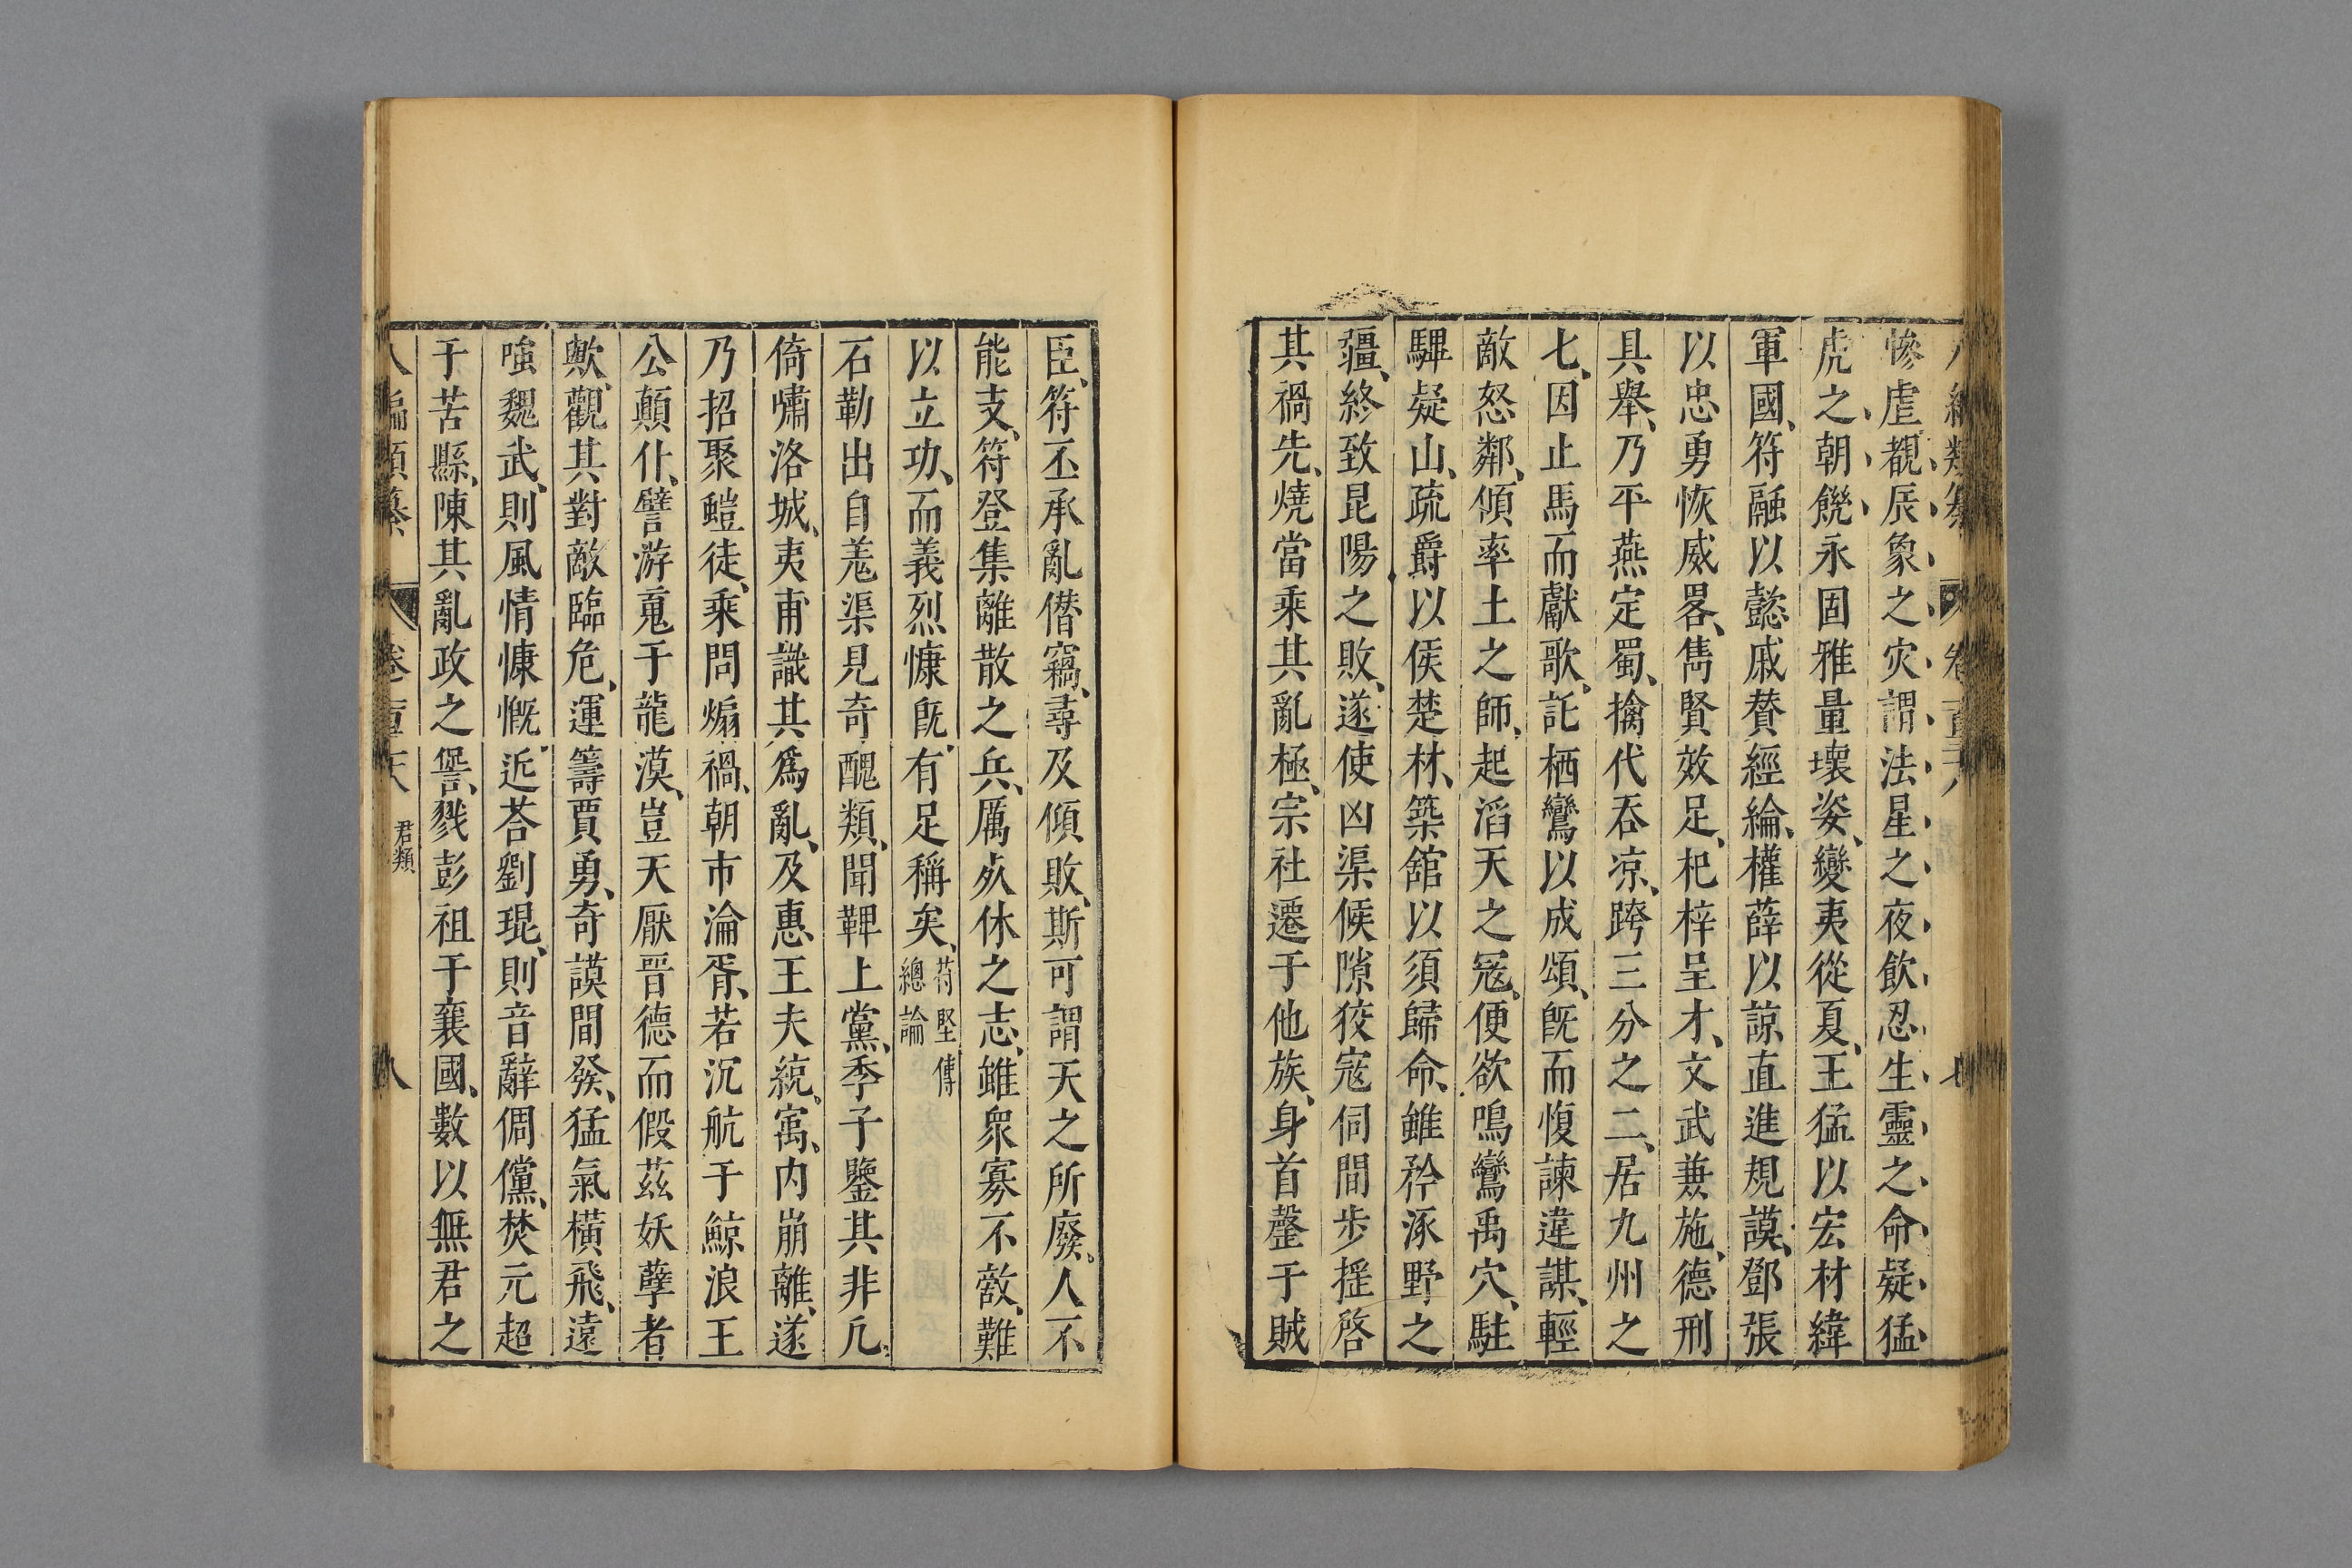 慘虐覩辰象之灾謂法星之夜飲忍生靈之命疑猛
虎之朝饑永固雅量壞姿變夷從夏王猛以宏材緯
軍國符融以懿戚賛經綸權薛以諒直進規謨鄧張
以忠勇恢威畧雋賢效足杞梓呈才文武兼施德刑
具舉乃平燕定蜀擒代吞凉跨三分之二居九州之
七因止馬而獻歌託栖鸞以成頌旣而愎諫違謀輕
敵怒鄰傾率土之師起滔天之寇便欲鳴鸞禹穴駐
驆疑山疏爵以俟楚材築舘以須歸命雖矜涿野之
彊終致昆陽之敗遂使凶渠候隙狡寇伺間步揺啓
其禍先燒當乘其亂極宗社遷于他族身首罄于賊
臣符丕承亂僣竊尋及傾敗斯可謂天之所廢人不
能支符登集離散之兵厲死休之志雖衆寡不敵難
以立功而義烈慷旣有足稱矣
苻堅傳
總論
石勒出自羗渠見奇醜類聞鞞上黨季子鑒其非凡
倚嘯洛城夷甫識其爲亂及惠王失統寓内崩離遂
乃招聚螘徒乘問煽禍朝市淪胥若沉航于鯨浪王
公顛仆譬游䰟于龍漠豈天厭晉德而假茲妖孽者
歟觀其對敵臨危運籌賈勇奇謨間發猛氣橫飛遠
嗤魏武則風情慷慨近荅劉琨則音辭倜儻焚元超
于苦縣陳其亂政之諐戮彭祖于襄國數以無君之
八編類纂 卷百三六 君類 八